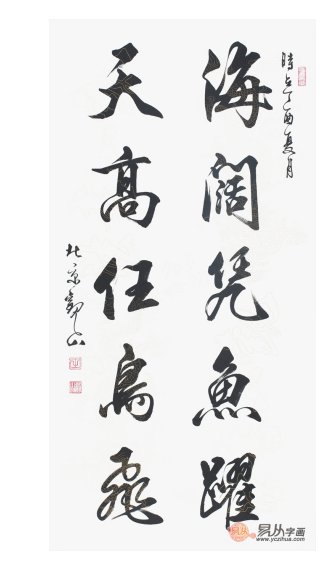 時在丁酉夏月
海闊凭魚躍
天高任鳥飛
北京
易从字画
www.yczihua.com